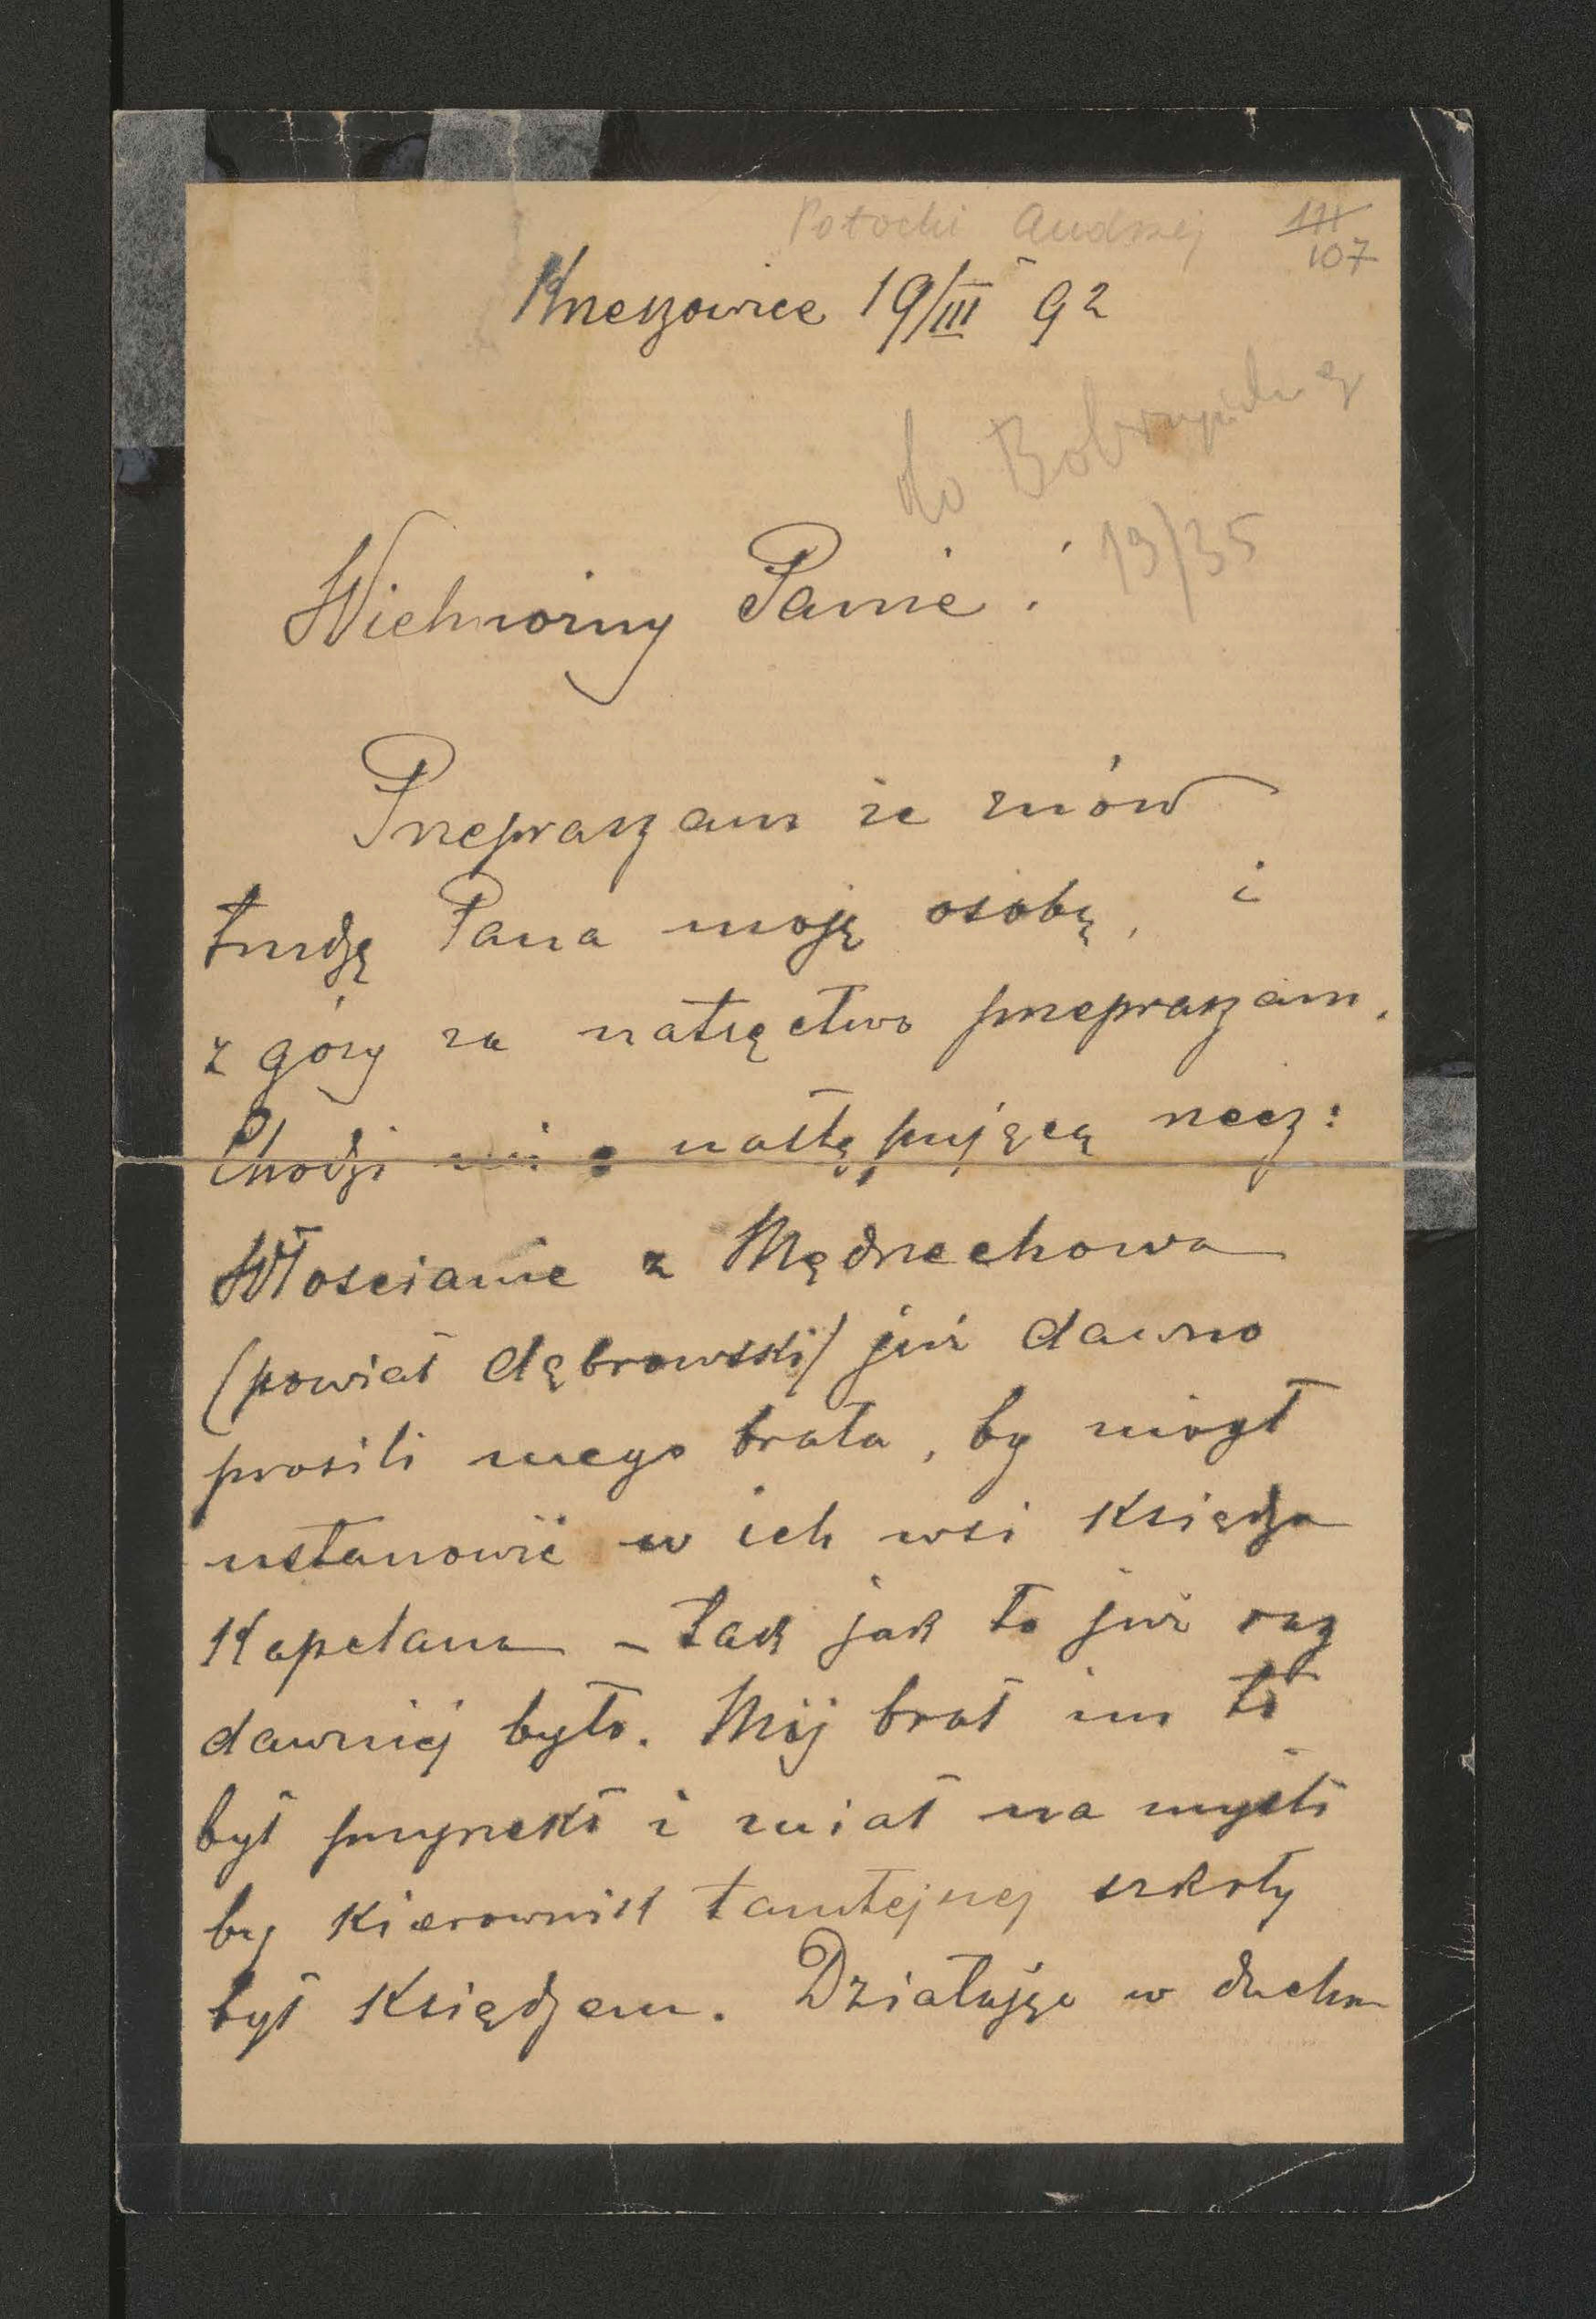 Potocki Andrzej 111/107
Krzeszowice 19/III 92
do Bobrzyńskiego
19/35
Wielmożny Panie!
Przepraszam że znów
trudzę Pana moją osobą, i
z góry za natręctwo przepraszam.
Chodzi mi o następującą rzecz:
Włościanie z Mędrzechowa
(powiat dąbrowski) już dawno
prosili mego brata, by mógł
ustanowić w ich wsi Księdza
Kapelana – tak jak to już raz
dawniej było. Mój brat im to
był przyrzekł i miał na myśli
by kierownik tamtejszej szkoły
był Księdzem. Działając w duchu